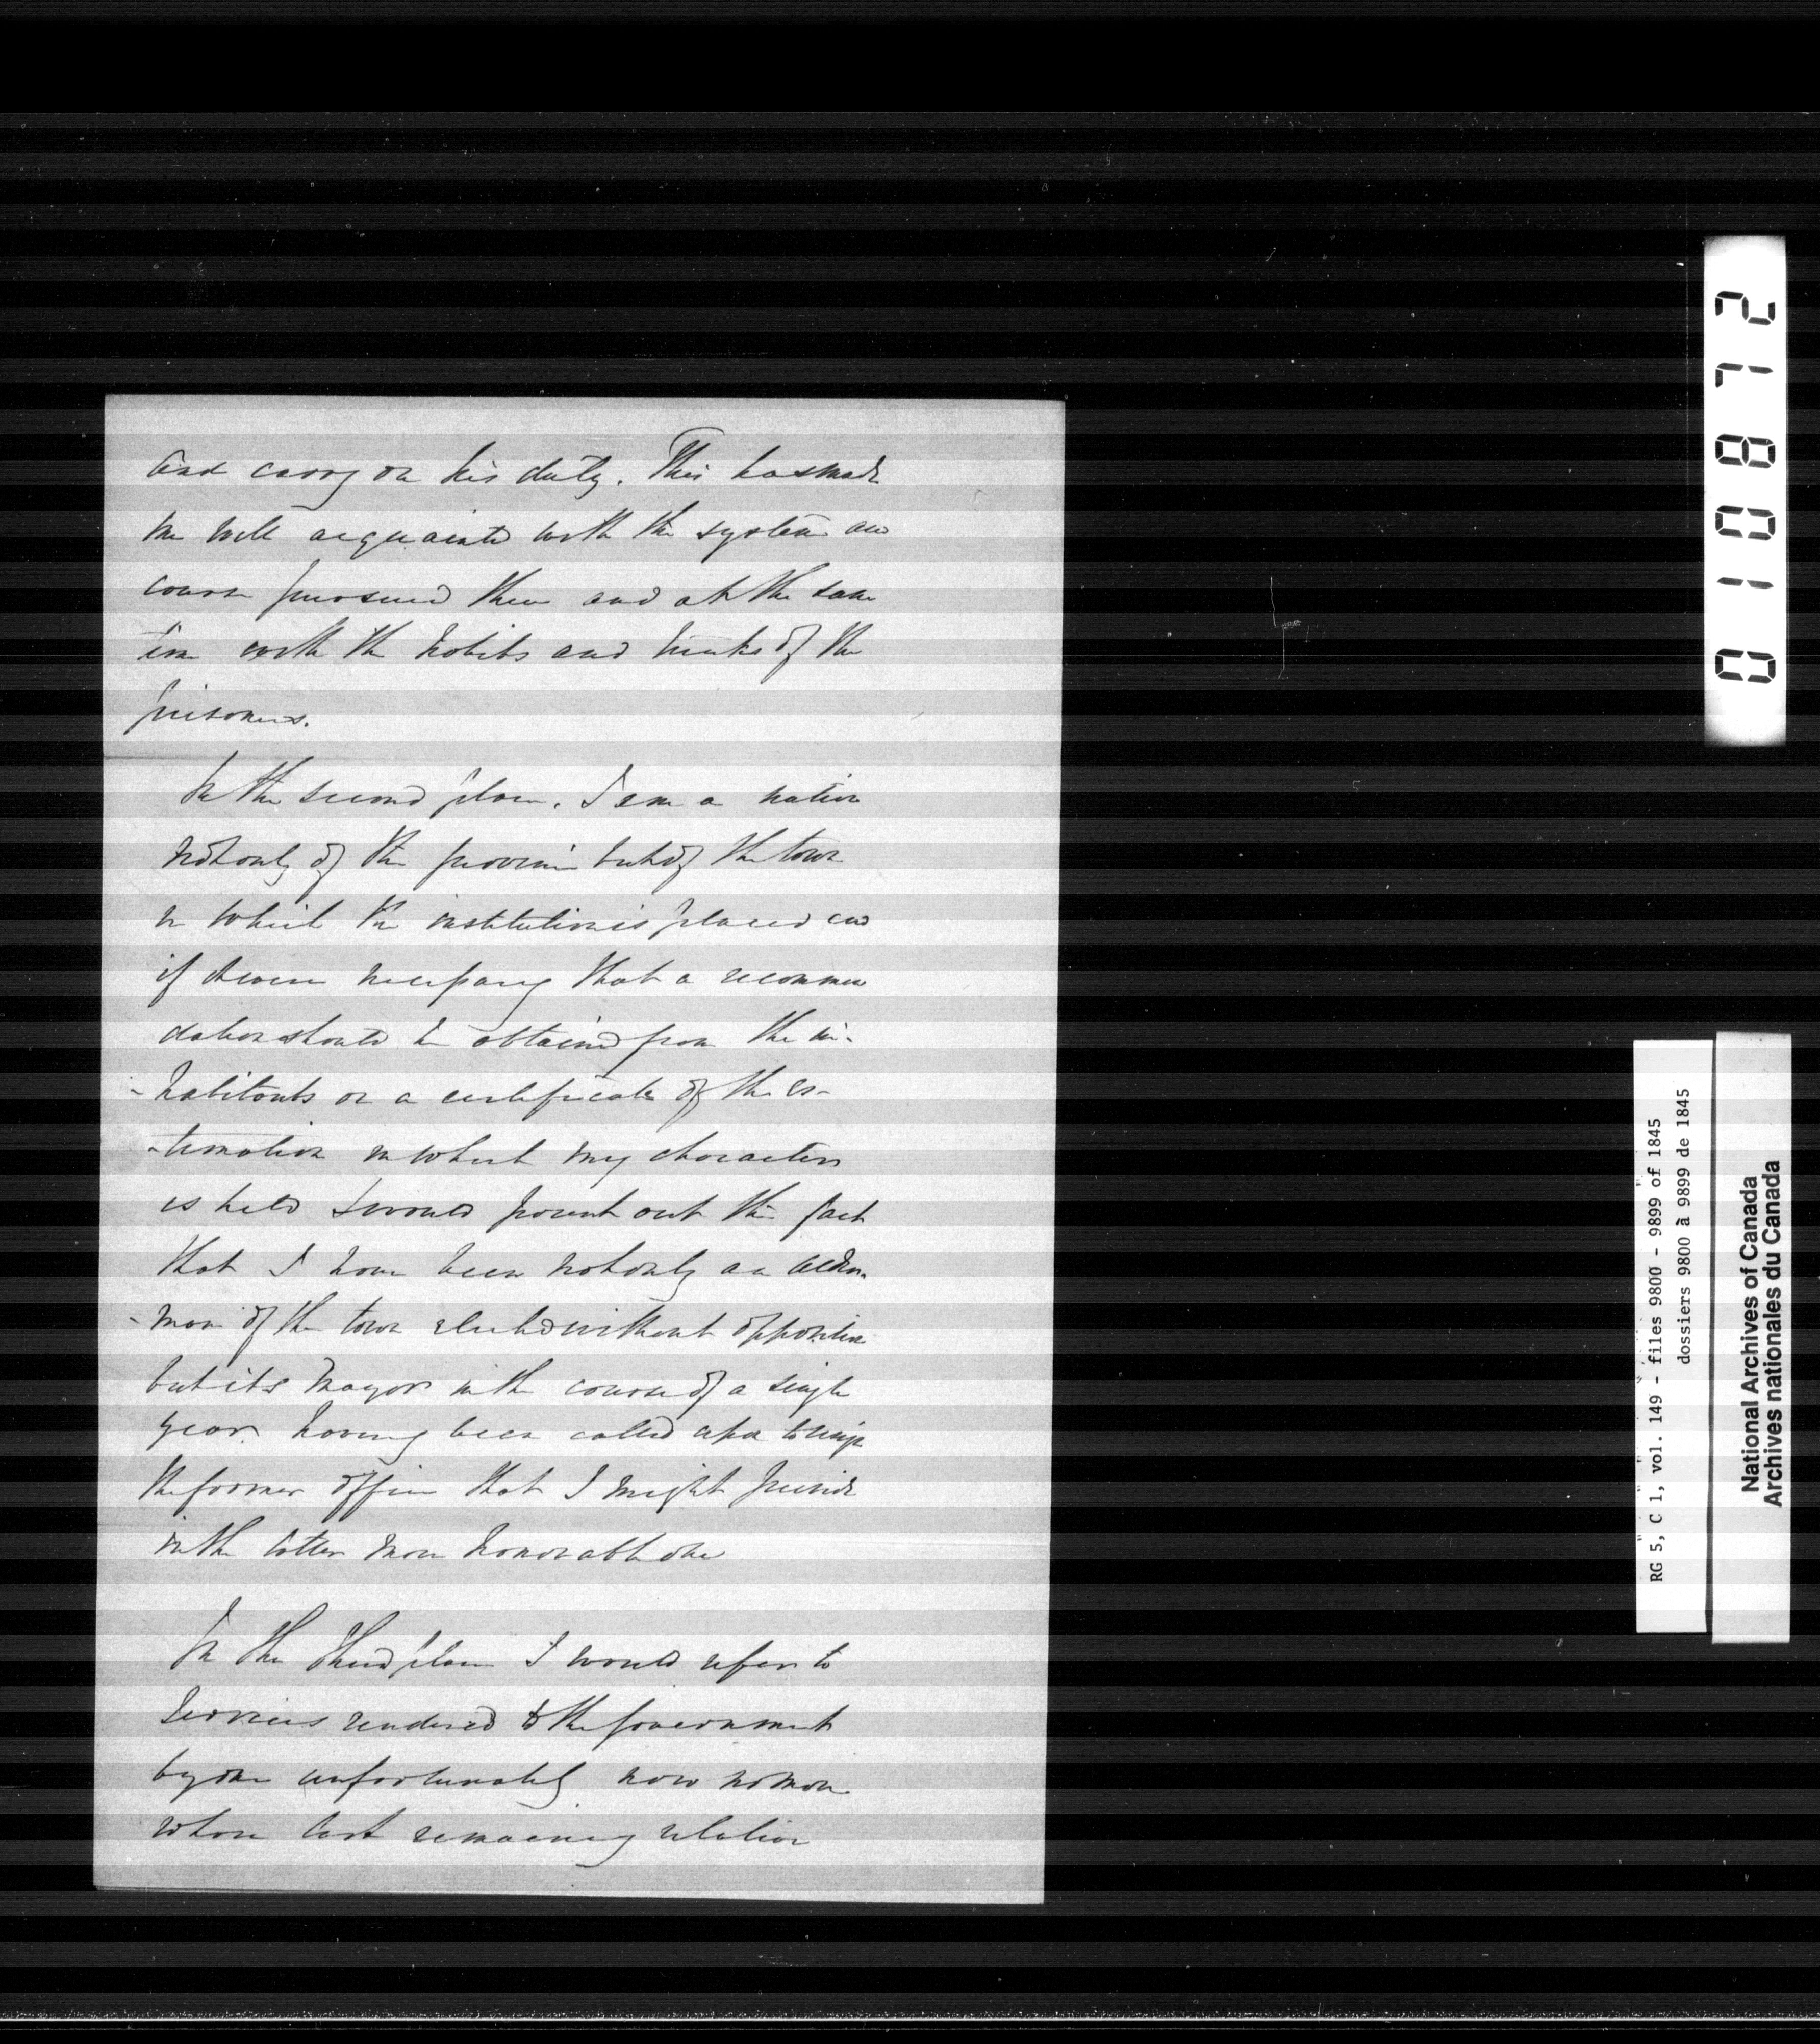 and carry on his duty. This has made
me well acquainted with the system and
course pursued there and at the same
time with the habits and of the
prisoners.
In the second place. I am a native
not only of the province but of the town
in which the institution is placed and
if it were necessary that a recommen
dation should be obtained from the in-
-habitants or a certificate of the es-
-timation in which my character
is held I would point out the fact
that I have been not only an alder-
-man of the town elected without opposition
but its Mayor in the course of a single
year having been called upon to resign
the former office that I might preside
in the latter more honorable one
In the third place I would refer to
services rendered to the Government
by one unfortunately now no more
whose last remaining relative
010872
RG 5, C 1, vol. 149 - files 9800 - 9899 of 1845
dossiers 9800 à 9899 de 1845
National Archives of Canada
Archives nationales du Canada